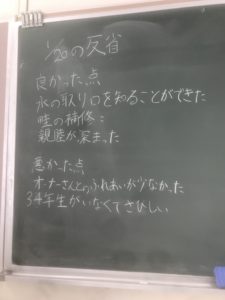 1/20の反省
良かった点
水の取り口を知ることができた
畦の補修:
親睦が深まった
悪かった点
オーナーさんとのふれあいが少なかった
34年生がいなくてさびしい